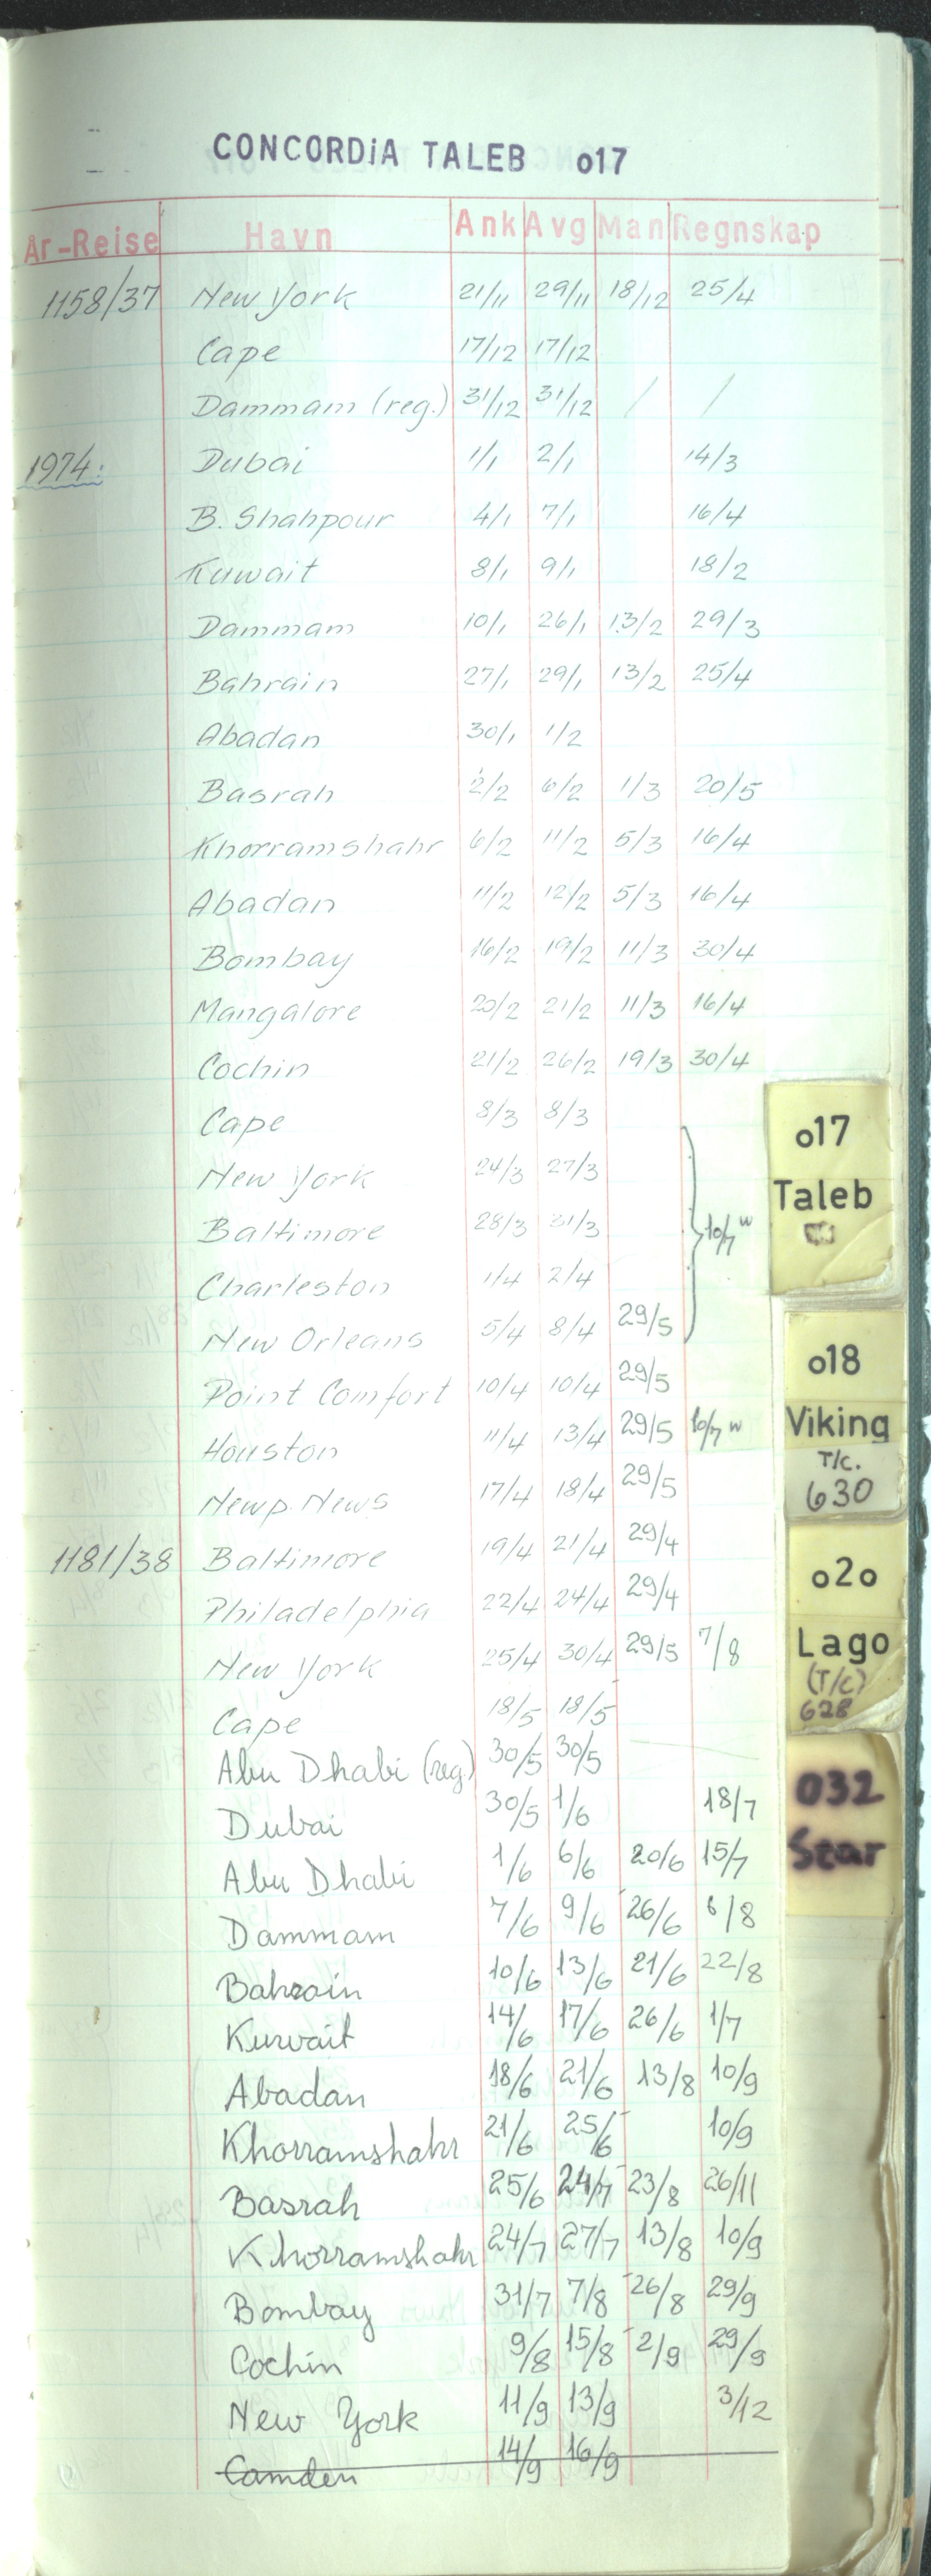 CONCORDiA TALEB o17
År-Reise Havn Ank Avg Man Regnskap
1158/37 New York 21/11 29/11 18/12 25/4
Cape 17/12 17/12
Dammam (reg.) 31/12 31/12 / /
1974: Dubai 1/1 2/1 14/3
B. Shahpour 4/1 7/1 16/4
Kuwait 8/1 9/1 18/2
Dammam 10/1 26/1 13/2 29/3
Bahrain 27/1 29/1 13/2 25/4
Abadan 30/1 1/2
Basrah 2/2 6/2 1/3 20/5
Khorramshahr 6/2 11/2 5/3 16/4
Abadan 11/2 12/2 5/3 16/4
Bombay 16/2 19/2 11/3 30/4
Mangalore 20/2 21/2 11/3 16/4
Cochin 21/2 26/2 19/3 30/4
Cape 8/3 8/3
New York 24/3 27/3
Baltimore 28/3 31/3 10/7 w
Charleston 1/4 2/4
New Orleans 5/4 8/4 29/5
Point Comfort 10/4 10/4 29/5
Houston 11/4 13/4 29/5 10/7 w
Newp. News 17/4 18/4 29/5
1181/38 Baltimore 19/4 21/4 29/4
Philadelphia 22/4 24/4 29/4
New York 25/4 30/4 29/5 7/8
Cape 18/5 18/5
Abu Dhabi (reg) 30/5 30/5
Dubai 30/5 1/6 18/7
Abu Dhabi 1/6 6/6 20/6 15/7
Dammam 7/6 9/6 26/6 6/8
Bahrain 10/6 13/6 21/6 22/8
Kuwait 14/6 17/6 26/6 1/7
Abadan 18/6 21/6 13/8 10/9
Khorramshahr 21/6 25/6 10/9
Basrah 25/6 24/7 23/8 26/11
Khorramshahr 24/7 27/7 13/8 10/9
Bombay 31/7 7/8 26/8 29/9
Cochin 9/8 15/8 2/9 29/9
New York 11/9 13/9 3/12
Camden 14/9 16/9
o17
Taleb
o18
Viking
T/c.
630
o2o
Lago
(T/C)
628
032
Star